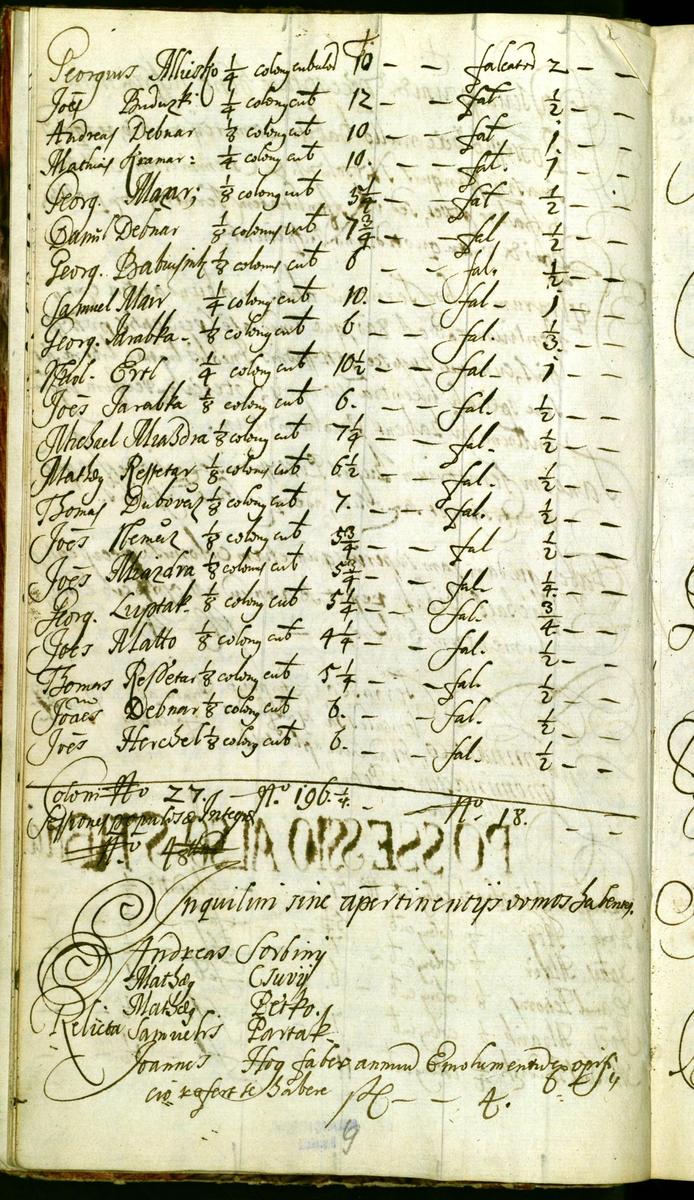 Georgius Mliesko 1/4 colony cubulos 10 - - falcator 2 - -
Joes Buduzki 1/4 colony cub 12 - - fal 1/2 - -
Andreas Debnar 1/8 colony cub 10 - - fal 1 - -
Mathias Kramar: 1/4 colony cub 10. - - fal. 1 - -
Georg. Mazur; 1/8 colony cub 5 1/4 - - fal 1/2 - -
Daniel Debnar 1/8 colony cub 7 3/4 - - fal 1/2 - -
Georg. 1/8 colony cub 6 - - fal. 1/2 - -
Samuel Mair 1/4 colony cub 10. - - fal - 1 - -
Georg. Jarabka - 1/8 colony cub 6 - - fal. 1/3 - -
Paul. Ertl 1/4 colony cub 10 1/2 - - fal - 1 - -
Joes Jarabka 1/8 colony cub 6. - - fal. 1/2 - -
Michael Miazdra 1/8 colony cub 7 1/4 - - fal. 1/2 - -
Mathæg Respetar 1/8 colony cub 6 1/2 - - fal. 1/2 - -
Thomas Dubovaz 1/8 colony cub 7. - - fal. 1/2 - -
Joes Nemuz 1/8 colony cub 5 3/4 - - fal 1/2 - -
Joes Miazdra 1/8 colony cub 5 3/4 - - fal. 1/4 - -
Georg. Luptak - 1/8 colony cub 5 1/4 - - fal. 3/4 - -
Joes Matto 1/8 colony cub 4 1/4 - - fal. 1/2 - -
Thomas Respetar 1/8 colony cub 5 1/4 - - fal. 1/2 - -
Joanes Debnar 1/8 colony cub 6. - - fal. 1/2 - -
Joes Herchel 1/8 colony cub 6. - - fal. 1/2 - -
Coloni No 27. - No. 196 1/4 - No. 18. - -
Sessiones populosæ Integræ
No 4
Inquilini sine apertinentijs domos habentes.
Andreas Sorbinij
Mathæg Csuvij
Mathæg Petko.
Relicta Samuelis Partak
Joannes Hog faber annuu Emolumentu ex opifi
cio refert se habere fl - - 4.
9